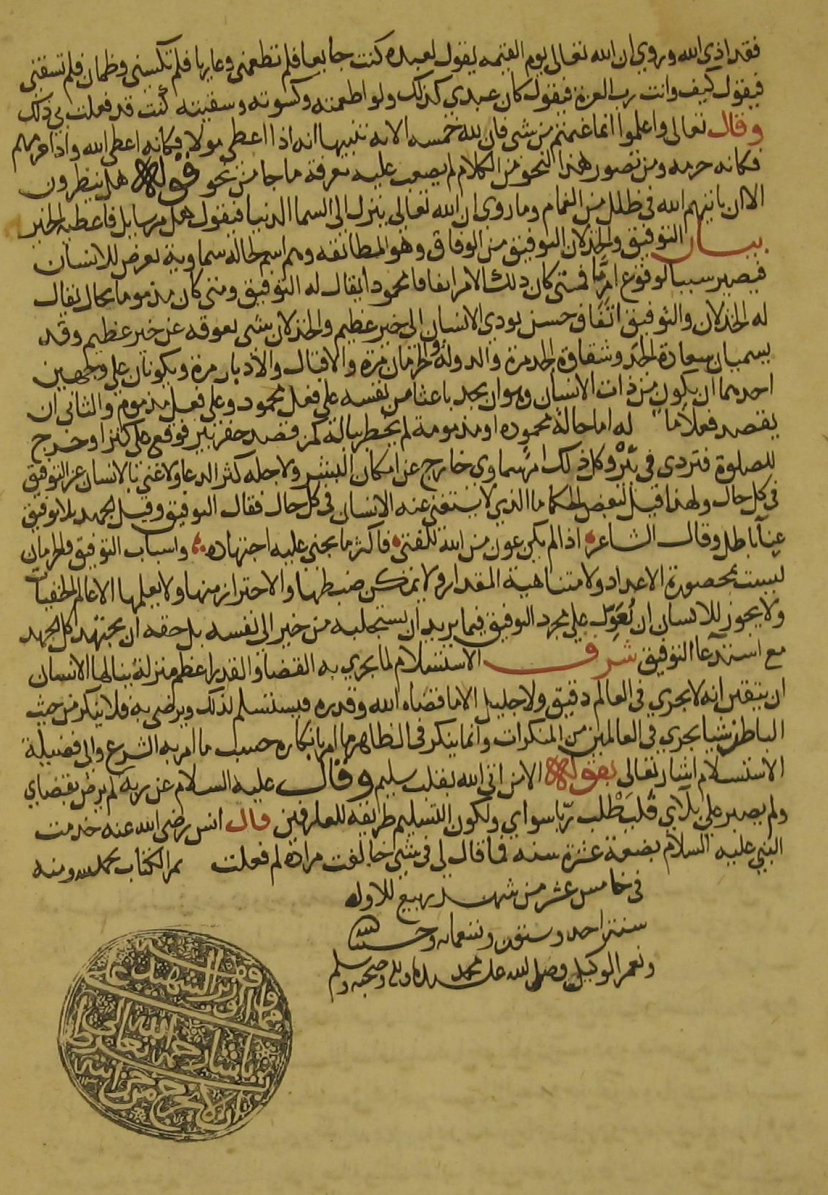 فقد اذى الله وروي ان الله تعالى يوم القيمه يقول لعبده كنت جايعا فلم تطعمنى وعاريا فلم تكسنى وظمان فلم تسقنى
فيقول كيف وانت رب العزة فيقول كان عبدي كذلك ولو اطعمته وكسوته وسقيته كنت قد فعلت بي ذلك
وقال تعالى واعلموا انما غنمتم من شى فان لله خمسه الايه تنبيها انه اذا اعطى مولا فكانه اعطى الله واذا حرمهم
فكانه حرمه ومن تصور هذا النحو من الكلام لم يصعب عليه معرفة ما جا من نحو قوله هل ينظرون
الا ان ياتيهم الله فى ظلل من الغمام وما روى ان الله تعالى ينزل الى السما الدنيا فيقول هل من سايل فاعطيه الخبر
بيان التوفيق والخذلان التوفيق من الوفاق وهو المطابقه وهم اسم لحاله سماوية تعرض للانسان
فيصير سببا لوقوع امر ما فمتى كان ذلك الامر اتفاقا محمودا يقال له التوفيق ومتى كان مذموما بحال يقال
له الخذلان والتوفيق اتفاق حسن يودي الانسان الى خير عظيم والخذلان بشى يعوقه عن خير عظيم وقد
يسميان بسعادة الجد وشقاوة الجد مرة والدولة والحرمان مرة والاقبال والادبار مرة ويكونان على وجهين
احدهما ان يكون من ذات الانسان وهو ان يجد باعثا من نفسه على فعل محمود وعلى فعل مذموم والثانى ان
يقصد فعلا ما له اما حالة محموده او مذمومة لم يخطر بباله كمن قصد حفر بير فوقع على كنز او خرج
للصلوة فتردى فى بئر وكل ذلك امر سماوي خارج عن امكان البشر ولاجله كثر الدعا ولا غنى بالانسان عن التوفيق
فى كل حال ولهذا قيل لبعض الحكما ما الذي لا يستغنى عنه الانسان فى كل حال فقال التوفيق وقيل الجهد بلا توفيق
عنا باطل وقال الشاعر اذا لم يكن عون من الله للفتى فاكثر ما يجنى عليه اجتهاده واسباب التوفيق والحرمان
ليست بمحصورة الاعداد ولا متناهية المقدار ولا يمكن ضبطها والاحتراز منها ولا يعلمها الا عالم الخفيات
ولا يجوز للانسان ان يعول على مجرد التوفيق فيما يريد ان يستجلبه من خير الى نفسه بل حقه ان يجتهد كل الجهد
مع استدعا التوفيق شرف الاستسلام لما يجري به القضا والقدر اعظم منزلة ينالها الانسان
ان يتيقن انه لا يجري فى العالم دقيق ولا جليل الا ما قضاه الله وقدره فيستسلم لذلك ويرضى به فلا ينكر من حيث
الباطن شيا يجري فى العالمين من المنكرات وانما ينكر فى الظاهر ما امر بانكاره حسب ما امر به الشرع والى فضيلة
الاستسلام اشار تعالى بقوله الا من اتى الله بقلب سليم وقال عليه السلام عن ربه لم يرض بقضاي
ولم يصبر على بلاي فليطلب ربا سواي ولكون التسليم طريقة للعارفين قال انس رضى الله عنه خدمت
النبي عليه السلام بضعة عشرة سنه فما قال لى فى شى خالفت مراده لم فعلت تم الكتاب بحمد الله ومنه
فى خامس عشر من شهر ربيع الاول
سنة احد وستون وتسعمايه وحسبنا الله
ونعم الوكيل وصلى الله على محمد واله وصحبه وسلم